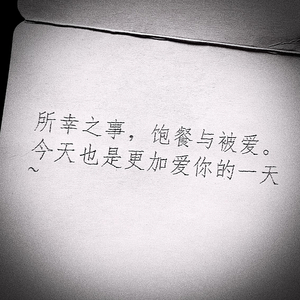 所幸之事，饱餐与被爱。
今天也是更加爱你的一天
~